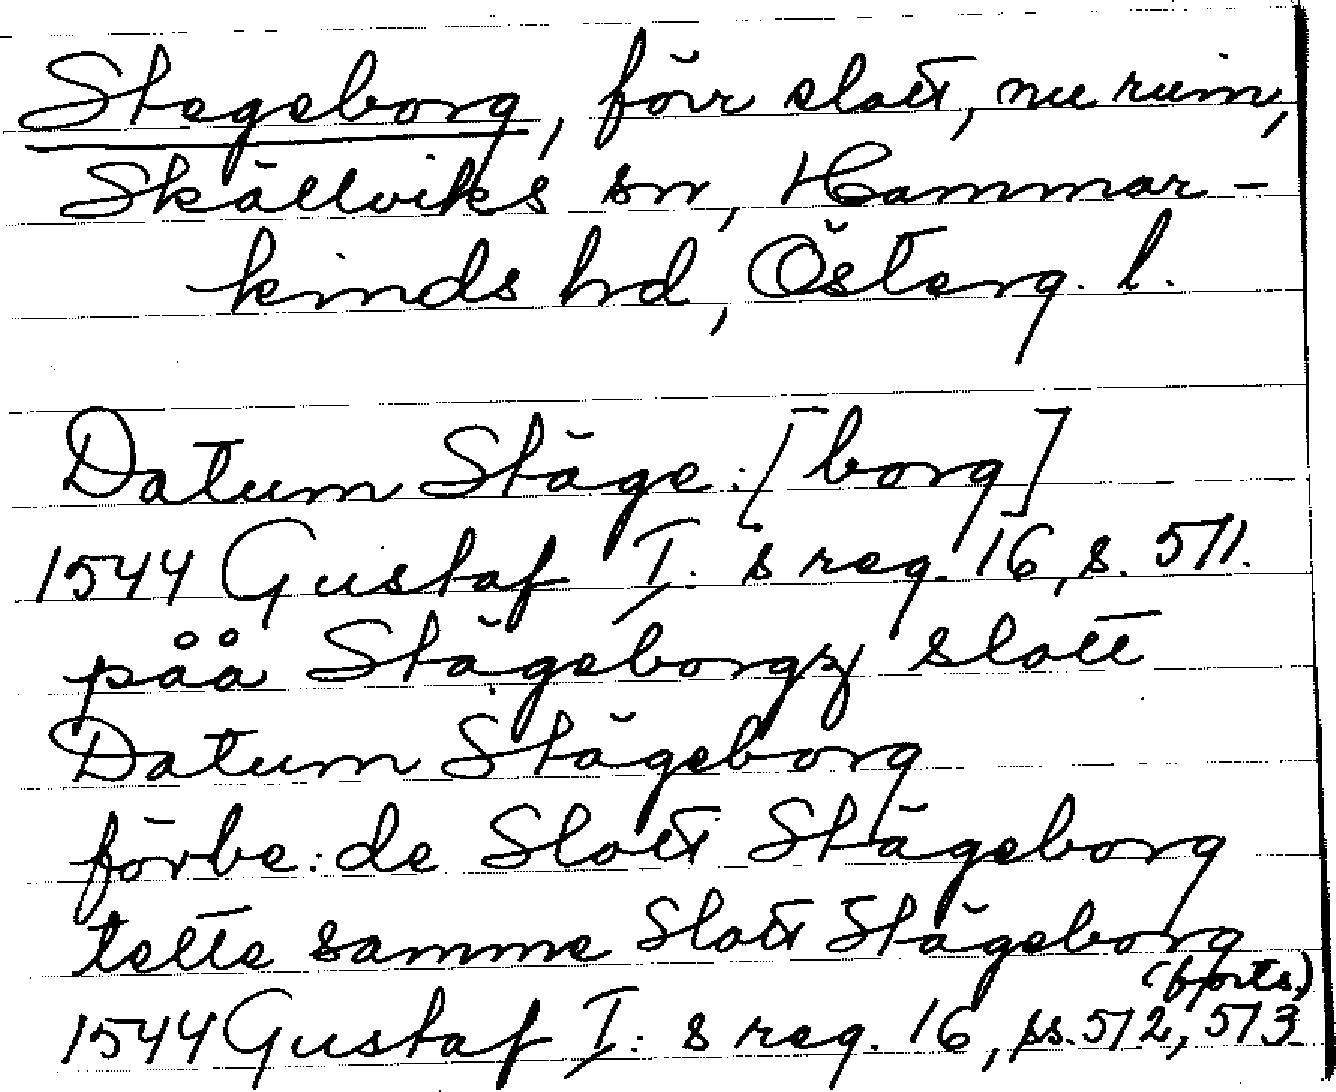 Stegeborg, förr slott, nu ruin,
Skällviks sn, Hammar-
kinds hd, Österg. l.
Datum Stäge: [borg]
1544 Gustaf I: s reg. 16, s. 511.
påå Stägeborgz slott
Datum Stägeborg
förbe: de Slott Stägeborg
tette samme Slott Stägeborg
(forts.)
1544 Gustaf I: s reg. 16, ss. 512, 513